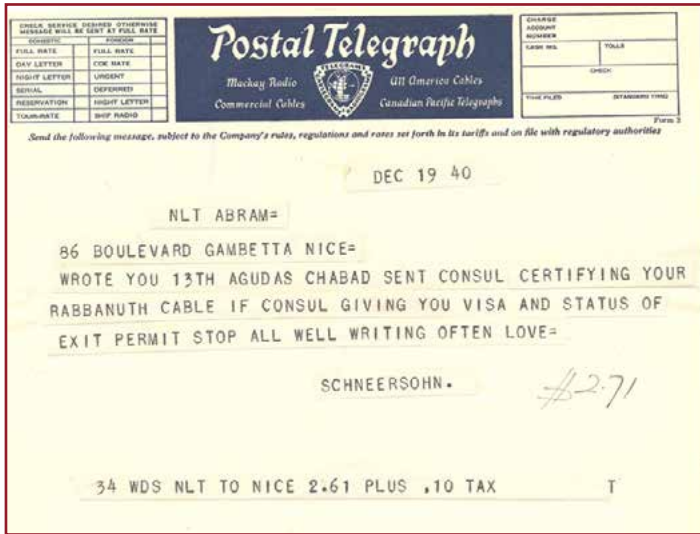 CHECK SERVICE DESIRED OTHERWISE
MESSAGE WILL BE SENT AT FULL RATE
DOMESTIC FOREIGN
FULL RATE FULL RATE
DAY LETTER CDE RATE
NIGHT LETTER URGENT
SERIAL DEFERRED
RESERVATION NIGHT LETTER
TOUR-RATE SHIP RADIO
Postal Telegraph
Mackay Radio All America Cables
Commercial Cables Canadian Pacific Telegraphs
CHARGE
ACCOUNT
NUMBER
CASH NO. TOLLS
CHECK
TIME FILED (STANDARD TIME)
Form 2
Send the following message, subject to the Company's rules, regulations and rates set forth in its tariffs and on file with regulatory authorities
DEC 19 40
NLT ABRAM=
86 BOULEVARD GAMBETTA NICE=
WROTE YOU 13TH AGUDAS CHABAD SENT CONSUL CERTIFYING YOUR
RABBANUTH CABLE IF CONSUL GIVING YOU VISA AND STATUS OF
EXIT PERMIT STOP ALL WELL WRITING OFTEN LOVE=
SCHNEERSOHN.
$2.71
34 WDS NLT TO NICE 2.61 PLUS .10 TAX T